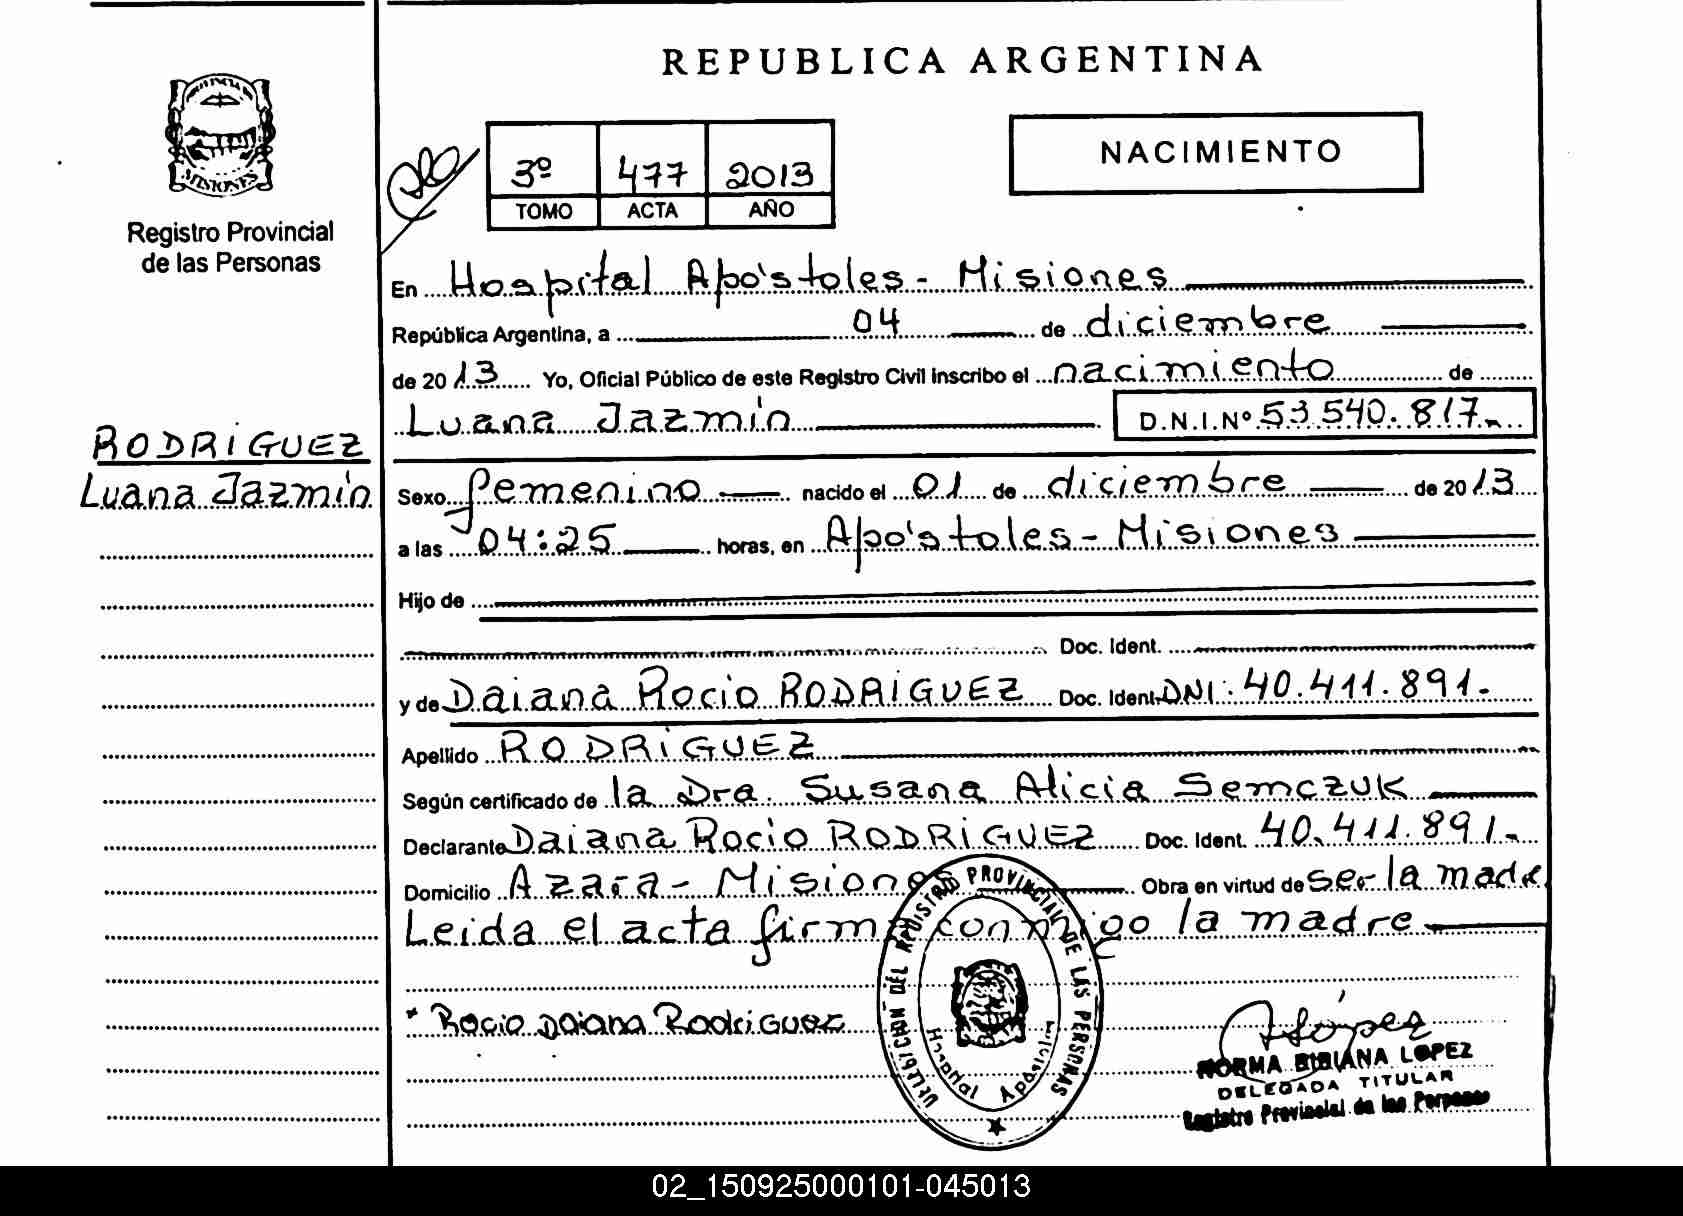 REPUBLICA ARGENTINA
PROVINCIA DE
MISIONES
Registro Provincial
de las Personas
3º 477 2013
TOMO ACTA AÑO
NACIMIENTO
En Hospital Apóstoles - Misiones
República Argentina, a 04 de diciembre
de 2013 Yo, Oficial Público de este Registro Civil inscribo el nacimiento de
Luana Jazmín D.N.I.Nº 53.540.817.-
RODRIGUEZ
Luana Jazmín
Sexo femenino nacido el 01 de diciembre de 2013
a las 04:25 horas, en Apóstoles - Misiones
Hijo de
Doc. Ident.
y de Daiana Rocio RODRIGUEZ Doc. Ident. DNI: 40.411.891.-
Apellido RODRIGUEZ
Según certificado de la Dra. Susana Alicia Semczuk
Declarante Daiana Rocio RODRIGUEZ Doc. Ident. 40.411.891.-
Domicilio Azara - Misiones Obra en virtud de ser la madre
Leida el acta firma conmigo la madre
* Rocio Daiana Rodriguez
DELEGACION DEL REGISTRO PROVINCIAL DE LAS PERSONAS
Hospital Apóstoles
López
NORMA BIBIANA LOPEZ
DELEGADA TITULAR
Registro Provincial de las Personas
02_150925000101-045013